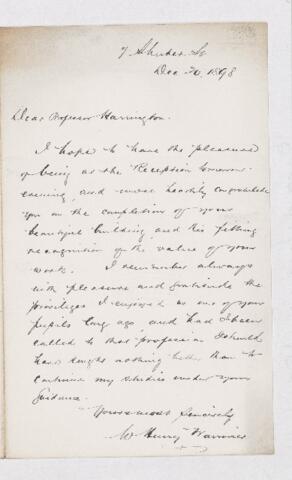 7 Shuter St
Dec 20, 1898
Dear Professor Harrington.
I hope to have the pleasure
of being at the Reception tomorrow
evening, and most heartily congratulate
you on the completion of your
beautiful building and this fitting
recognition of the value of your
work. I remember always
with pleasure and gratitude the
privileges I enjoyed as one of your
pupils long ago, and had I been
called to that profession I should
have sought nothing better than to
continue my studies under your
guidance.
Yours most sincerely
W Henry Warriner